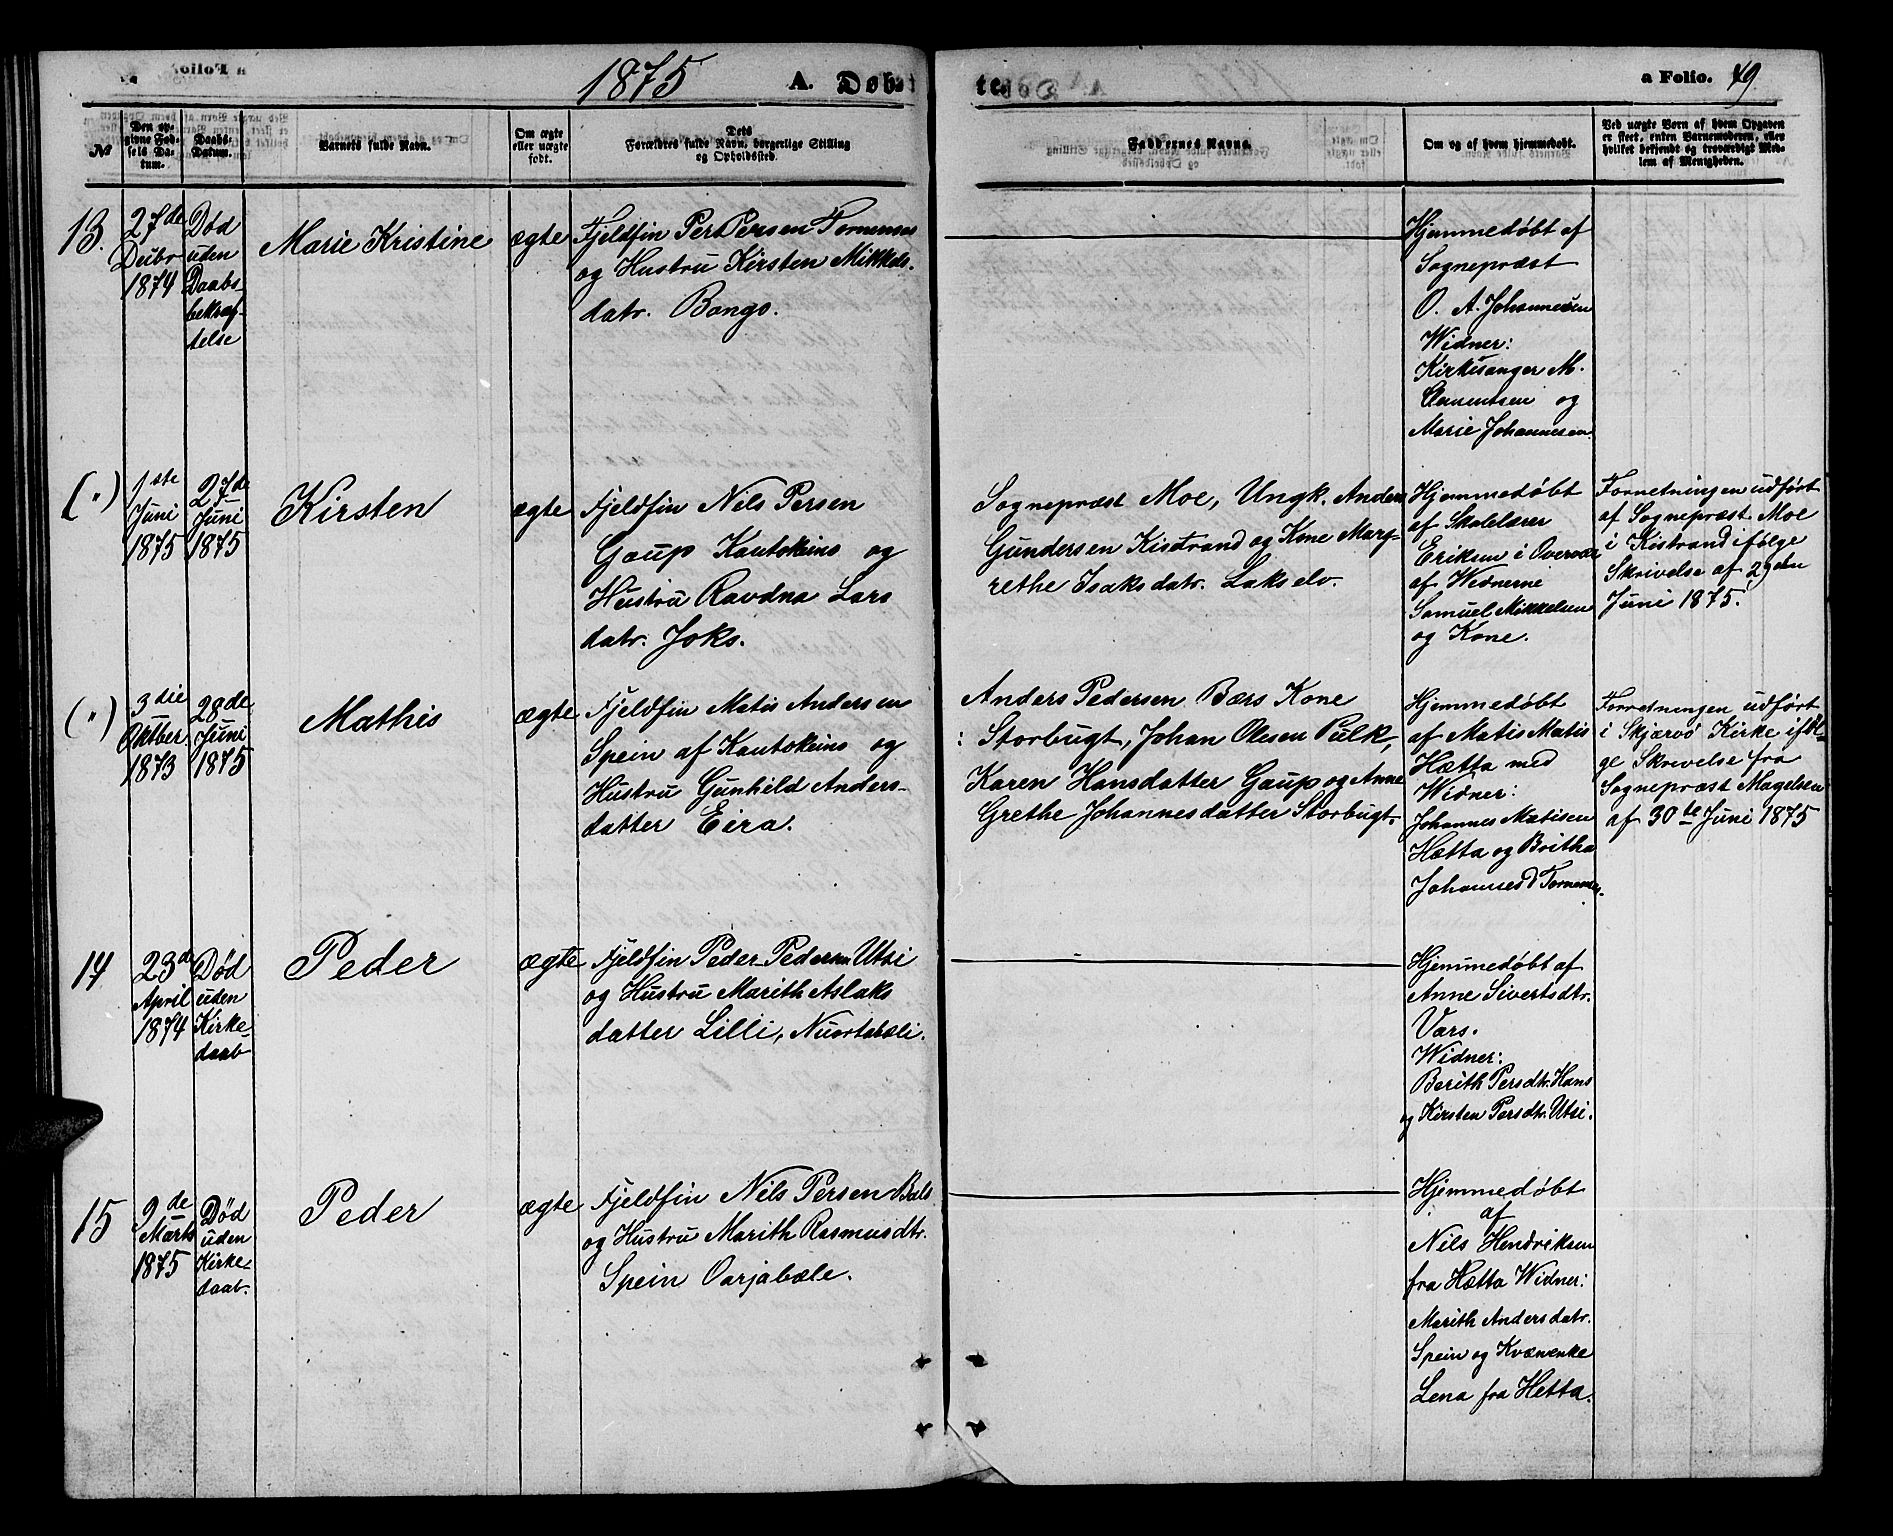 1875 A. Døbte. a Folio. 49.
№
Den opgivne Fødsels Datum.
Daabs-Datum.
Barnets fulde Navn.
Om ægte eller uægte født.
Dets Forældres fulde Navn, borgerlige Stilling og Opholdssted.
Faddernes Navne.
Om og af hvem hjemmedøbt.
Ved uægte Børn af hvem Opgaven er skeet, enten Barnemoderen, eller hvilket bekjendt og troværdigt Medlem af Menigheden.
13.
27de
Decbr
1874
Død
uden
Daabs-
bekræf-
telse
Marie Kristine
ægte
Fjeldfin Per Persen Fornemes
og Hustru Kirsten Mikkels-
datr. Bongo.
Hjemmedøbt af
Sognepræst
O. A. Johannesen
Widner:
Kirkesanger M.
Clementsen og
Marie Johannesen
(")
1ste
Juni
1875
27de
Juni
1875
Kirsten
ægte
Fjeldfin Nils Persen
Gaup Kautokeino og
Hustru Ravdna Lars
datr. Joks.
Sognepræst Moe, Ungk. Anders
Gundersen Kistrand og Kone Marg-
rethe Isaksdatr. Lakselv.
Hjemmedøbt
af Skolelærer
Eriksen i
af Widnerne
Samuel Mikkelsen
og Kone.
Forretningen udført
af Sognepræst Moe
i Kistrand ifølge
Skrivelse af 29den
Juni 1875.
(")
3die
Oktber
1873
28de
Juni
1875
Mathis
ægte
Fjeldfin Matis Andersen
Spein af Kautokeino og
Hustru Gunhild Anders-
datter Eira.
Anders Pedersen Bærs Kone
: Storbugt, Johan Olesen Pulk,
Karen Hansdatter Gaup og Anne
Grethe Johannesdatter Storbugt.
Hjemmedøbt
af Matis Matis
Hætta med
Widner:
Johannes Matisen
Hætta og Britha
Johannesd Fornemes.
Forretningen udført
i Skjærvø Kirke iføl-
ge Skrivelse fra
Sognepræst Magelsen
af 30te Juni 1875
14
23d
April
1874
Død
uden
Kirke-
daab
Peder
ægte
Fjeldfin Peder Pedersen Utsi
og Hustru Marith Aslaks
datter Lilli, Nuortabæli.
Hjemmedøbt af
Anne Sivertsdtr.
Vars.
Widner:
Berith Persdtr. Hans
og Kirsten Persdtr. Utsi.
15
9de
Marts
1875
Død
uden
Kirke-
daab.
Peder
ægte
Fjeldfin Nils Persen Bals
og Hustru Marith Rasmusdtr.
Spein Oarjabæle.
Hjemmedøbt
af
Nils Hendriksen
fra Hætta Widner:
Marith Andersdatr.
Spein og Kvænenke
Lena fra Hetta.